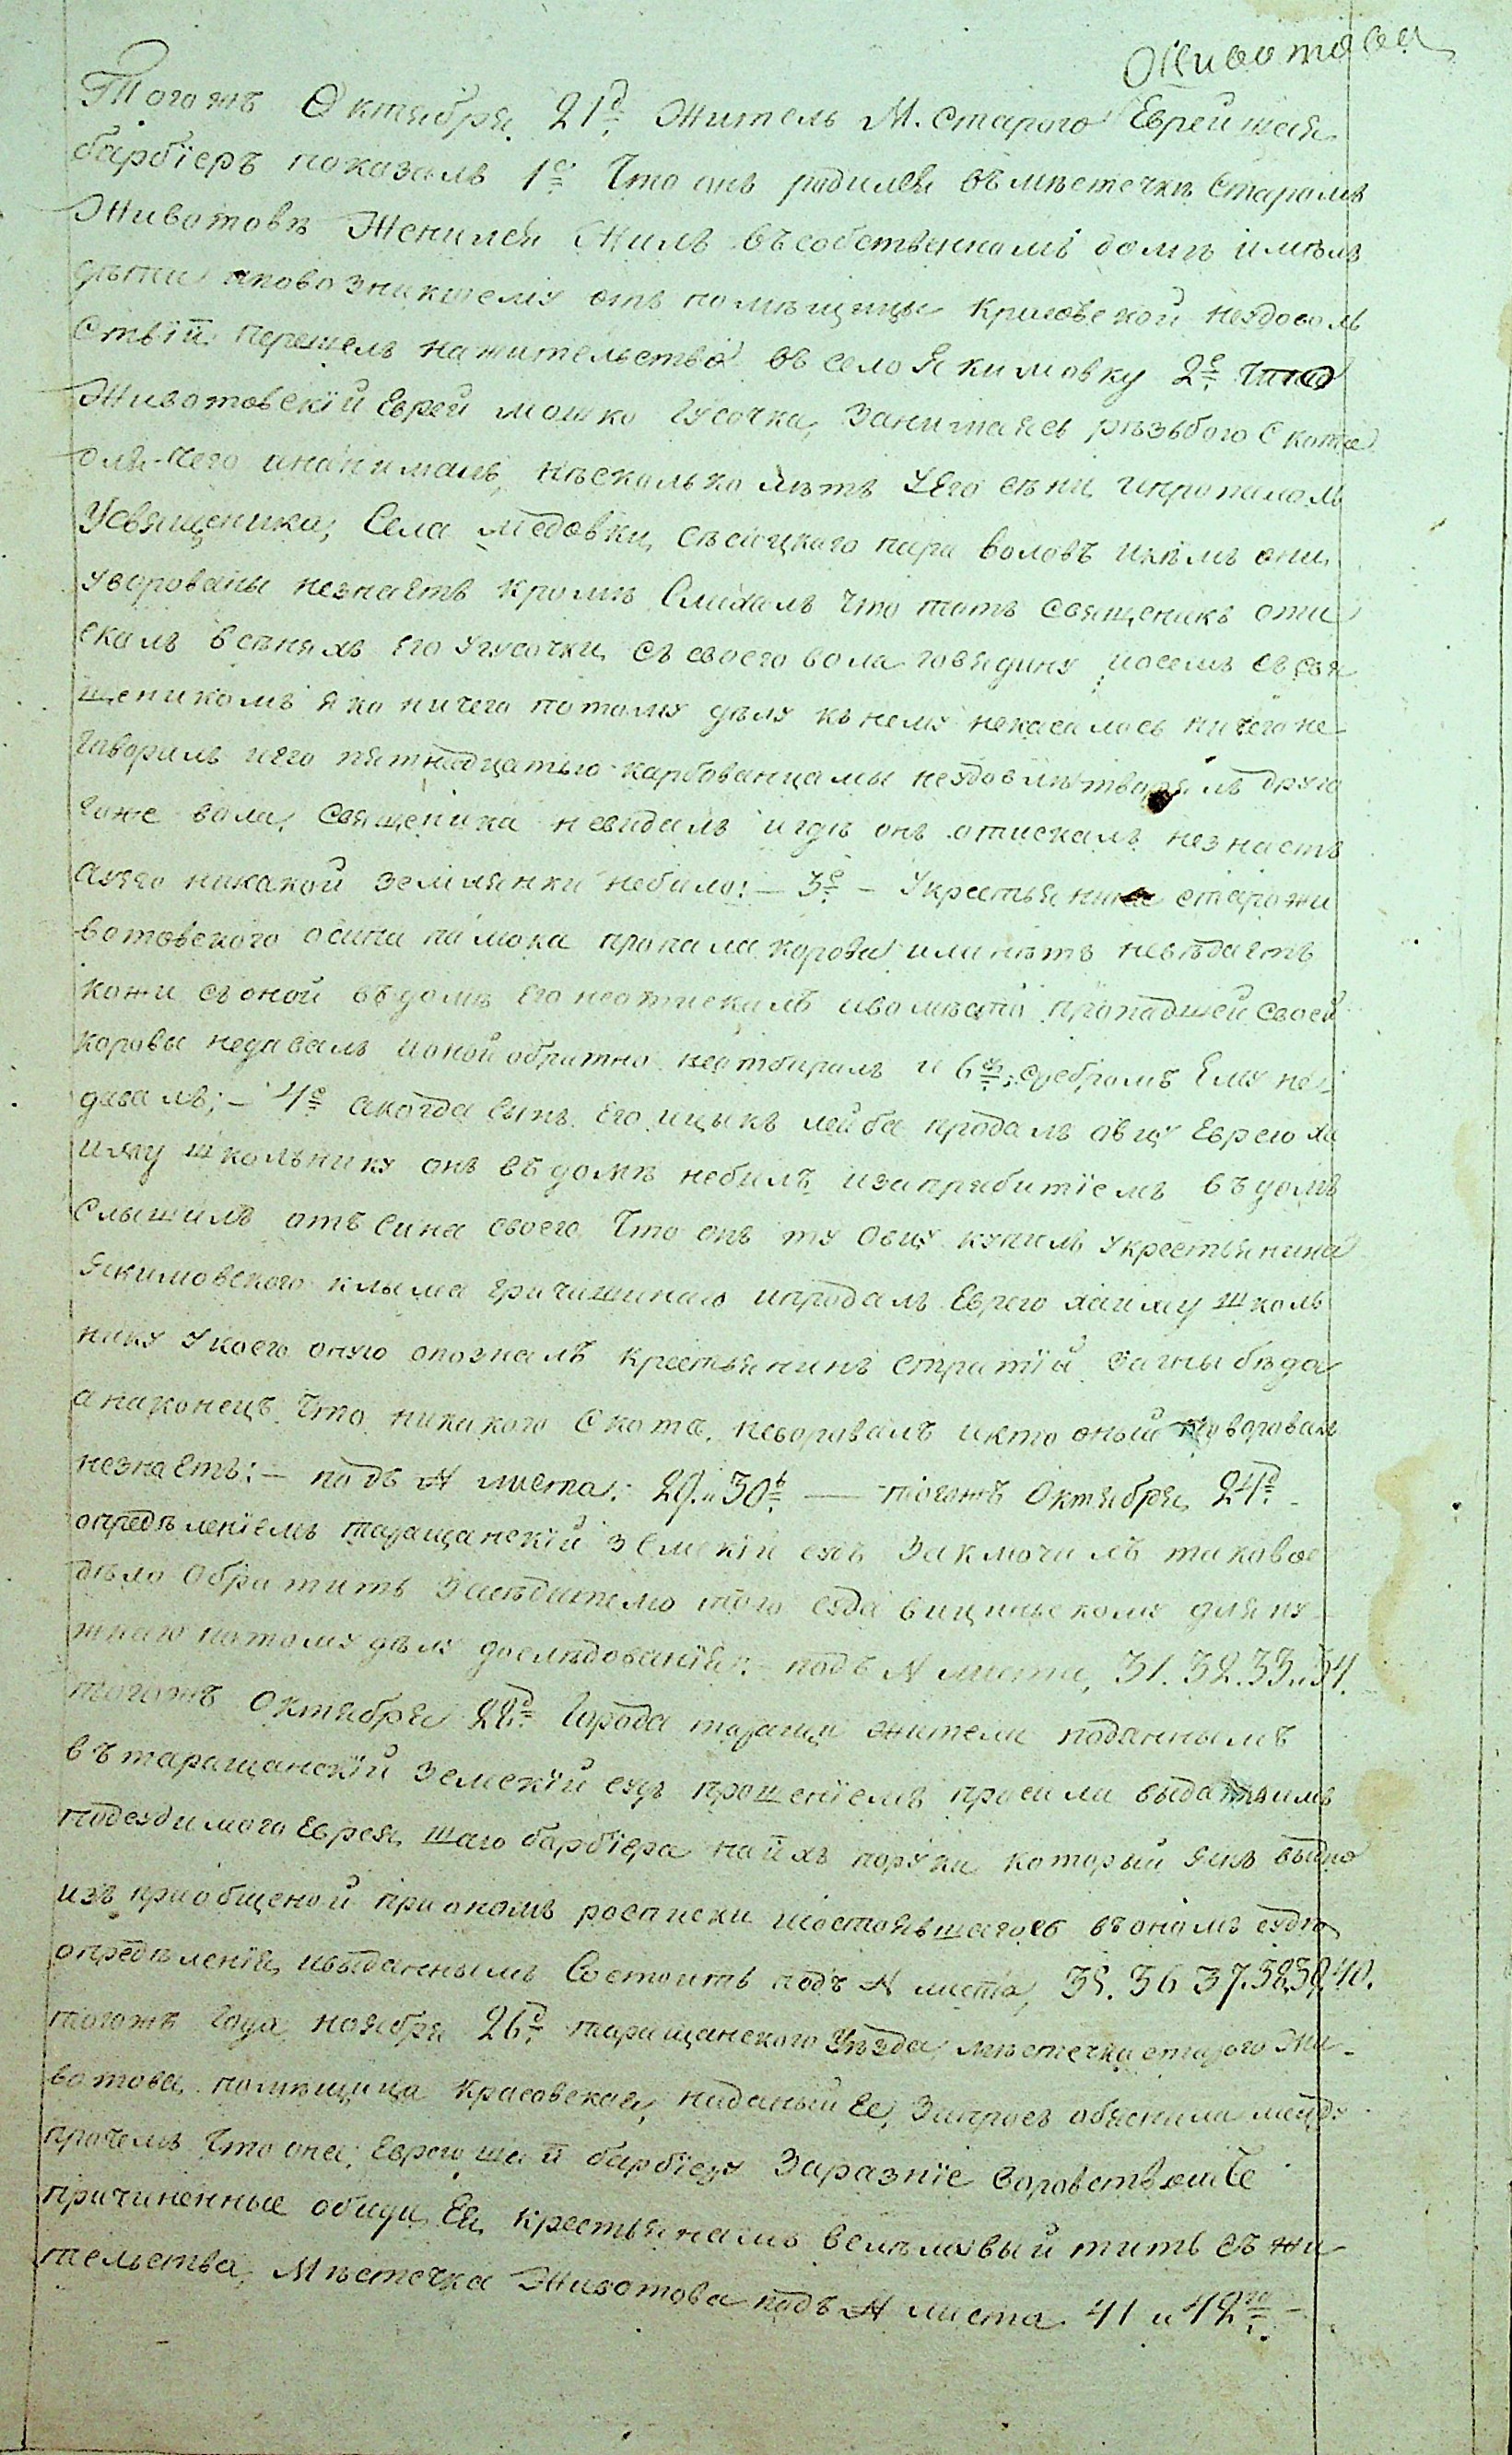 Животова
Тогожъ Октября 21д. Житель М. Старого Еврей шая
барбіеръ показалъ 1е Что онъ родился въ мѣстечкѣ Старомъ
Животовѣ Женился Жилъ въ собственномъ домѣ имѣлъ
дѣти иповозникшему отъ помѣщицы Крисовской неудоволь
ствій перешелъ нажительство въ село Якимовку 2е Что
Животовскій Еврей мошко Гусочка, Занимаясь рѣзьбою Скота
для чего инанималъ нѣсколько лѣтъ УЕго сѣни ипропалаль
Усвященика, Села Медовки, сѣсицкого пара воловъ икѣмъ они
уворованы незнаетъ кромѣ Слихалъ что тотъ священикъ оти
скалъ всѣняхъ его Угусочки съ своего вола говядину иосемъ съсвя
щеникомъ яко ничего потому дѣлу кънему некасалось ничего не
говорилъ иего пятнадцатью карбованцамы неудовлѣтворялъ друго
гоже вола, Священика невидалъ игдѣ онъ отискалъ незнаетъ
ауего никакой землянки небило: — 3е — Укрестьянина старожи
вотовского осипа помока пропала корова илинѣтъ невѣдаетъ
кожи съоной въдомѣ его неотискилъ ивомѣсто пропадшей своей
коровы недавалъ ионой обратно неотбиралъ и 6 р. сребромъ Ему не
давалъ; — 4е акогда Сынъ Его ицыкъ лейба продалъ овцу Еврею ха
иму школьнику онъ въдомѣ небилъ изаприбитіемъ въдомъ
Слышилъ отъ Сина своего Что онъ ту овцу купилъ Укрестьянина
Якимовского клыма гричишиного ипродалъ Еврею хаиму школь
нику Укоего оную опозналъ крестьянинъ стратій загныбѣда
анаконецъ Что никакого Скота неворовалъ икто оный уворовалъ
незнаетъ: — подъ № листа: 29. и 30ъ — тогожъ Октября 24д.
опредѣленіемъ таращанскій Земскій судъ Заключилъ таковое
дѣло обратить Засѣдателю того суда вицинскому для ну
жнаго потому дѣлу дослѣдованія: — подъ № листа, 31. 32. 33 и 34.
тогожъ Октября 22д. Города таращи жители поданнымъ
въ таращанскій Земскій судъ прошеніемъ просили выдать имъ
подсудимого Еврея шаю барбіера на ихъ поруки который якъ видно
изъ приобщеной приономъ росписки исостоявшагось въономъ судѣ
опредѣленія ивыданнымъ Состоитъ подъ № листа, 35. 36 37. 38. 39. 40.
тогожъ Года ноября 26д. таращанского Уѣзда, мѣстечка старого Жи-
вотова, помѣщица Красовская, наданый Ее, Запросъ обяснила между
прочемъ Что она, Еврею шаи барбіеру Заразніе воровства
причиненные обиди Ея крестьянамъ велѣла выйтить съ жи
тельства, Мѣстечка Животова подъ № листа 41 и 42